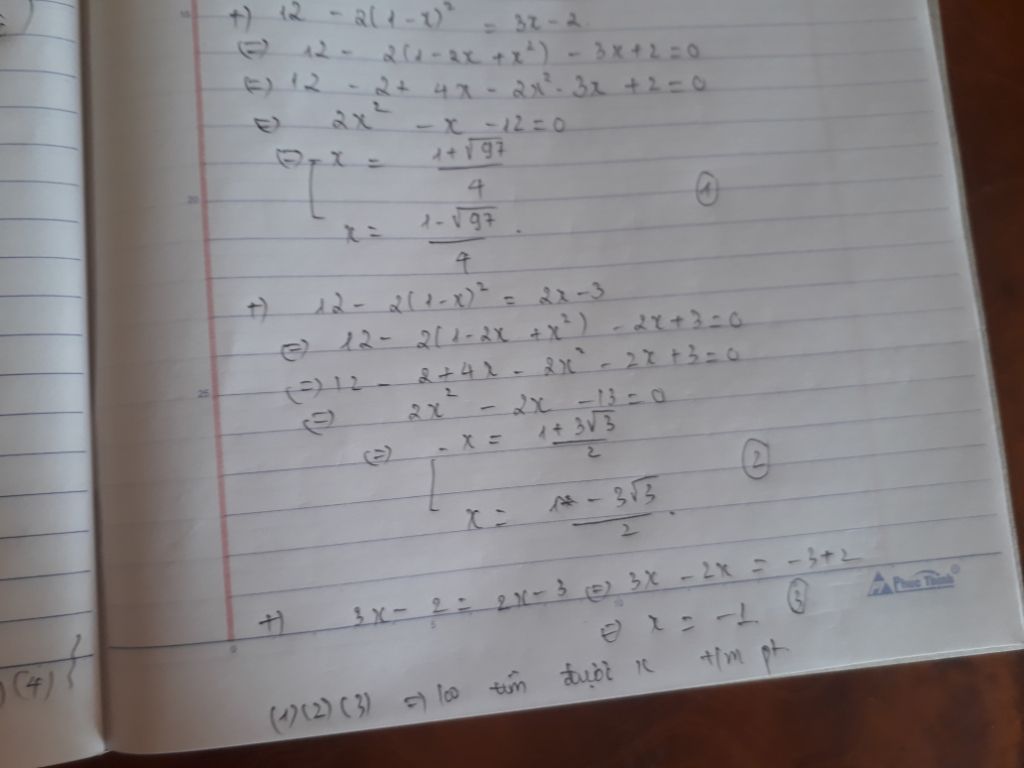 +) 12 - 2(1-x)² = 3x-2
(=) 12 - 2(1-2x+x²) - 3x+2=0
(=) 12 - 2+ 4x - 2x² - 3x +2=0
(=) 2x² - x - 12=0
(=) [ x = (1+√97)/4
x = (1-√97)/4. ①
+) 12 - 2(1-x)² = 2x-3
(=) 12 - 2(1-2x+x²) - 2x+3=0
(=) 12 - 2+4x - 2x² - 2x+3=0
(=) 2x² - 2x - 13=0
(=) [ x = (1+3√3)/2
x = (1-3√3)/2. ②
+) 3x-2 = 2x-3 (=) 3x - 2x = -3+2
Phúc Thịnh®
(=) x = -1 ③
)(4) {
(1)(2)(3) =) ko tìm được x t/m pt
15
20
25
0
5
10